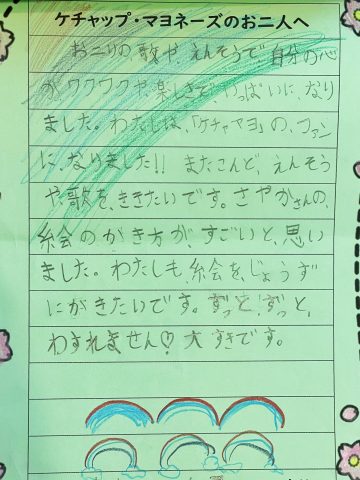 ケチャップ・マヨネーズのお二人へ
お二りの、歌や、えんそうで、自分の心
が、ワクワクや、楽しさで、いっぱいに、なり
ました。わたしは、「ケチャマヨ」の、ファン
に、なりました!! またこんど、えんそう
や、歌を、ききたいです。さやかさんの、
絵のかき方が、すごいと、思い
ました。わたしも、絵を、じょうず
にかきたいです。ずっと、ずっと、
わすれません♡大すきです。